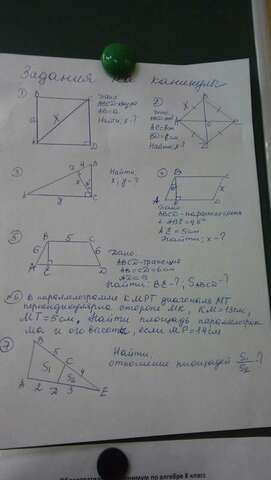 Задания на каникулы
1) Дано:
ABCD-квадрат
AB=a
Найти: x-?
2) Дано:
AC=8см
BD=6см
Найти: x-?
3) Найти:
x, y-?
4) Дано:
ABCD-параллелограмм
∠ABE=45°
AE=5см
Найти: x-?
5) Дано:
ABCD-трапеция
AB=CD=6см
Найти: BE-?; SABCD-?
№6 В параллелограмме KMPT диагональ MT
перпендикулярна стороне MK, KM=13см,
MT=5см. Найти площадь параллелограм-
ма и его высоты, если MP=14см
7) Найти
отношение площадей S1/S2-?